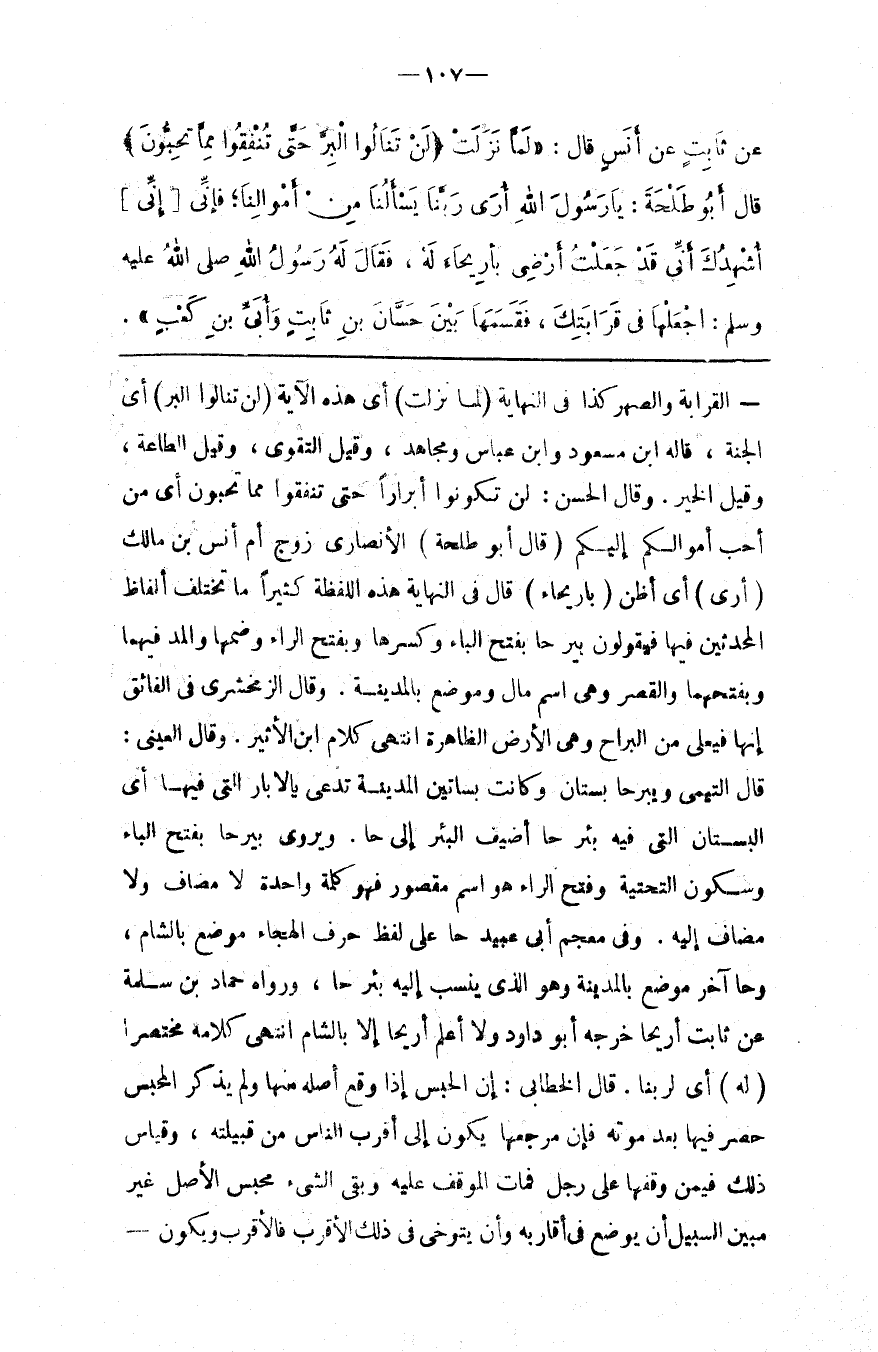 —١٠٧—
عن ثَابِتٍ عن أَنَسٍ قال : «لَمَّا نَزَلَتْ ﴿لَنْ تَنَالُوا الْبِرَّ حَتَّى تُنْفِقُوا مِمَّا تُحِبُّونَ﴾
قال أَبُو طَلْحَةَ : يَارَسُولَ اللهِ أُرَى رَبَّنَا يَسْأَلُنَا مِنْ أَمْوالِنَا؛ فَإِنِّى [ إِنِّى ]
أُشْهِدُكَ أَنِّى قَدْ جَعَلْتُ أَرْضِى بأَرِيحَاءَ لَهُ ، فَقَالَ لَهُ رَسُولُ اللهِ صلى اللهُ عليه
وسلم : اجْعَلْهَا فى قَرَابَتِكَ ، فَقَسَمَهَا بَيْنَ حَسَّانَ بنِ ثَابِتٍ وَأُبَىِّ بنِ كَعْبٍ » .
— القرابة والصهر كذا فى النهاية (لما نزلت) أى هذه الآية (لن تنالوا البر) أى
الجنة ، قاله ابن مسعود وابن عباس ومجاهد ، وقيل التقوى ، وقيل الطاعة ،
وقيل الخير . وقال الحسن : لن تكونوا أبراراً حتى تنفقوا مما تحبون أى من
أحب أموالكم إليكم ( قال أبو طلحة ) الأنصارى زوج أم أنس بن مالك
( أرى ) أى أظن ( باريحاء ) قال فى النهاية هذه اللفظة كثيراً ما تختلف ألفاظ
المحدثين فيها فيقولون بير حا بفتح الباء وكسرها وبفتح الراء وضمها والمد فيهما
وبفتحهما والقصر وهى اسم مال وموضع بالمدينة . وقال الزمخشرى فى الفائق
إنها فيعلى من البراح وهى الأرض الظاهرة انتهى كلام ابن الأثير . وقال العينى :
قال التيمى ويبرحا بستان وكانت بساتين المدينة تدعى بالابار التى فيها أى
البستان التى فيه بئر حا أضيف البئر إلى حا . ويروى بيرحا بفتح الباء
وسكون التحتية وفتح الراء هو اسم مقصور فهو كلمة واحدة لا مضاف ولا
مضاف إليه . وفى معجم أبى عبيد حا على لفظ حرف الهجاء موضع بالشام ،
وحا آخر موضع بالمدينة وهو الذى ينسب إليه بئر حا ، ورواه حماد بن سلمة
عن ثابت أريحا خرجه أبو داود ولا أعلم أريحا إلا بالشام انتهى كلامه مختصرا
( له ) أى لربنا . قال الخطابى : إن الحبس إذا وقع أصله منها ولم يذكر المحبس
حصر فيها بعد موته فإن مرجعها يكون إلى أقرب الناس من قبيلته ، وقياس
ذلك فيمن وقفها على رجل فمات الموقف عليه وبقى الشىء محبس الأصل غير
مبين السبيل أن يوضع فى أقاربه وأن يتوخى فى ذلك الأقرب فالأقرب ويكون —